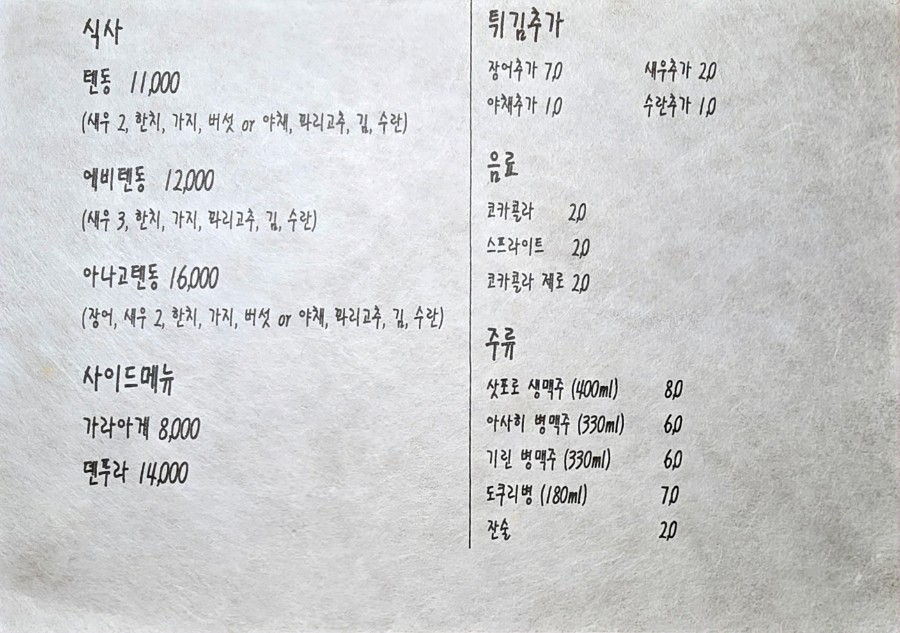 식사
텐동 11,000
(새우 2, 한치, 가지, 버섯 or 야채, 꽈리고추, 김, 수란)
에비텐동 12,000
(새우 3, 한치, 가지, 꽈리고추, 김, 수란)
아나고텐동 16,000
(장어, 새우 2, 한치, 가지, 버섯 or 야채, 꽈리고추, 김, 수란)
사이드메뉴
가라아게 8,000
덴푸라 14,000
튀김추가
장어추가 7,0 새우추가 2,0
야채추가 1,0 수란추가 1,0
음료
코카콜라 2,0
스프라이트 2,0
코카콜라 제로 2,0
주류
삿포로 생맥주 (400ml) 8,0
아사히 병맥주 (330ml) 6,0
기린 병맥주 (330ml) 6,0
도쿠리병 (180ml) 7,0
잔술 2,0